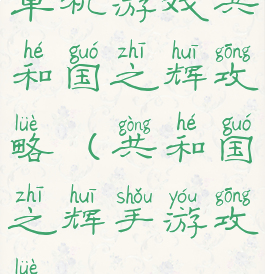 单机游戏共
hé guó zhī huī gōng
和国之辉攻
lüè gòng hé guó
略（共和国
zhī huī shǒu yóu gōng
之辉手游攻
lüè